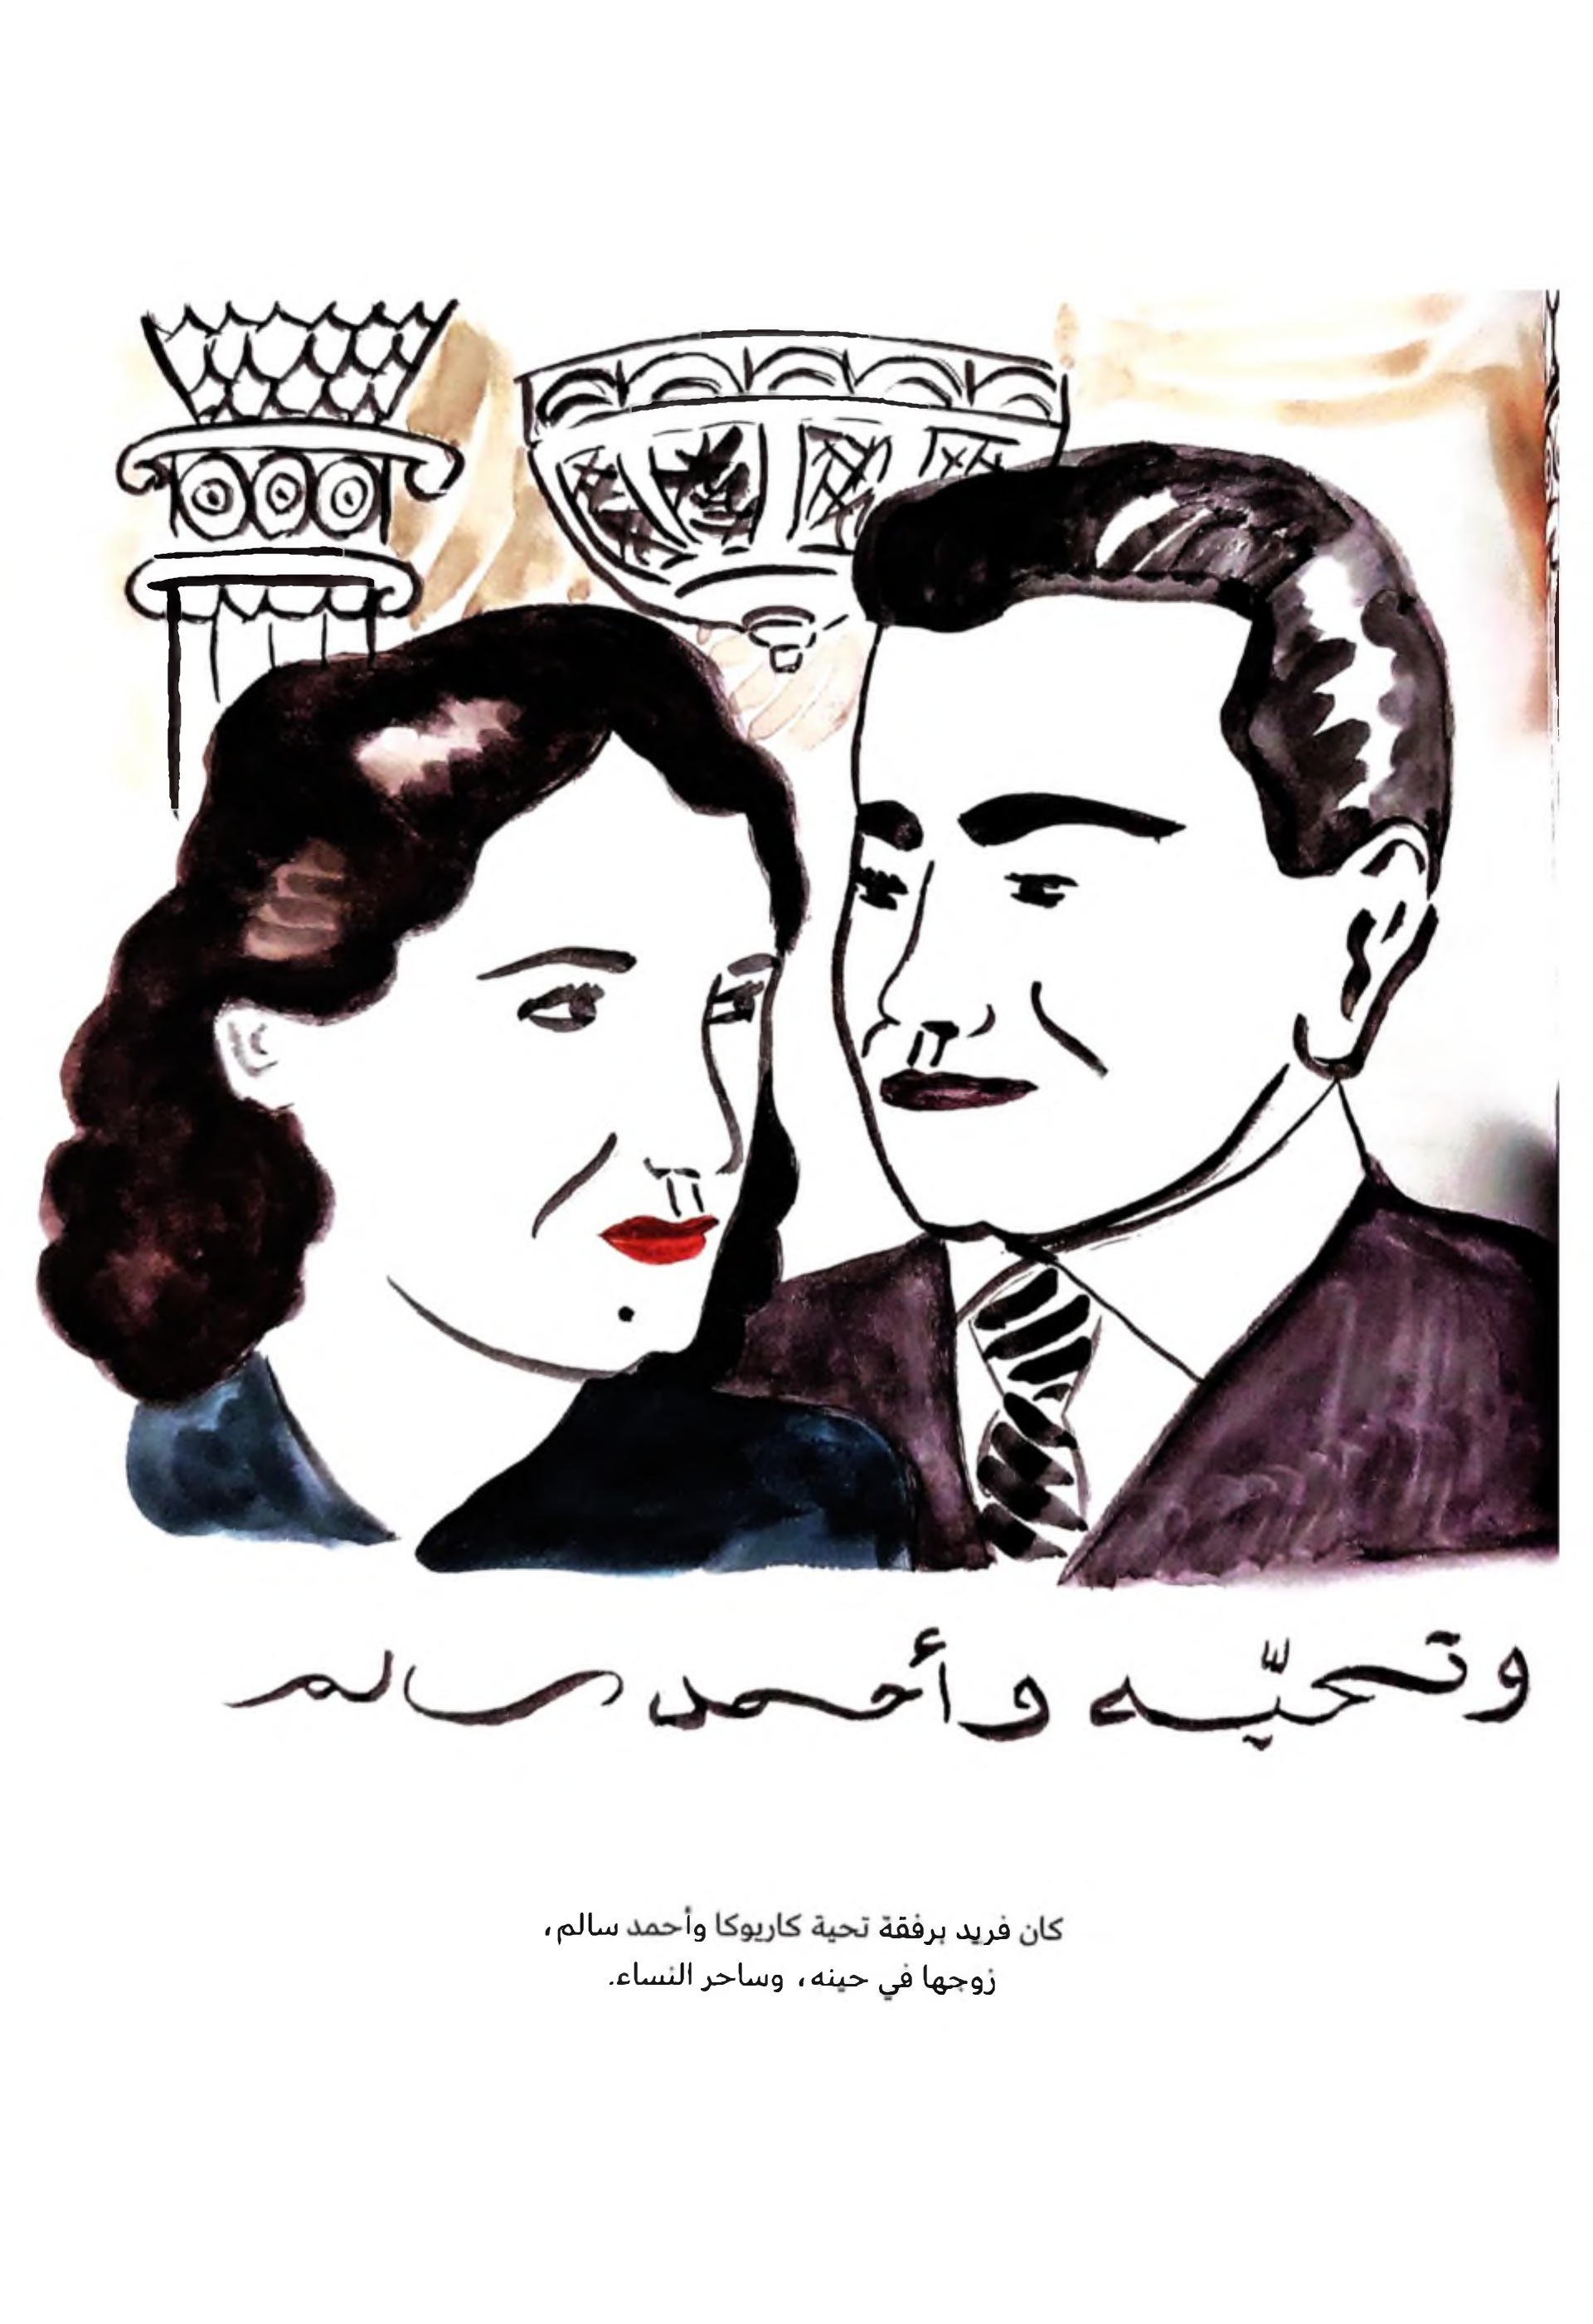 وتحيّه وأحمد سالم
كان فريد برفقة تحية كاريوكا وأحمد سالم،
زوجها في حينه، وساحر النساء.